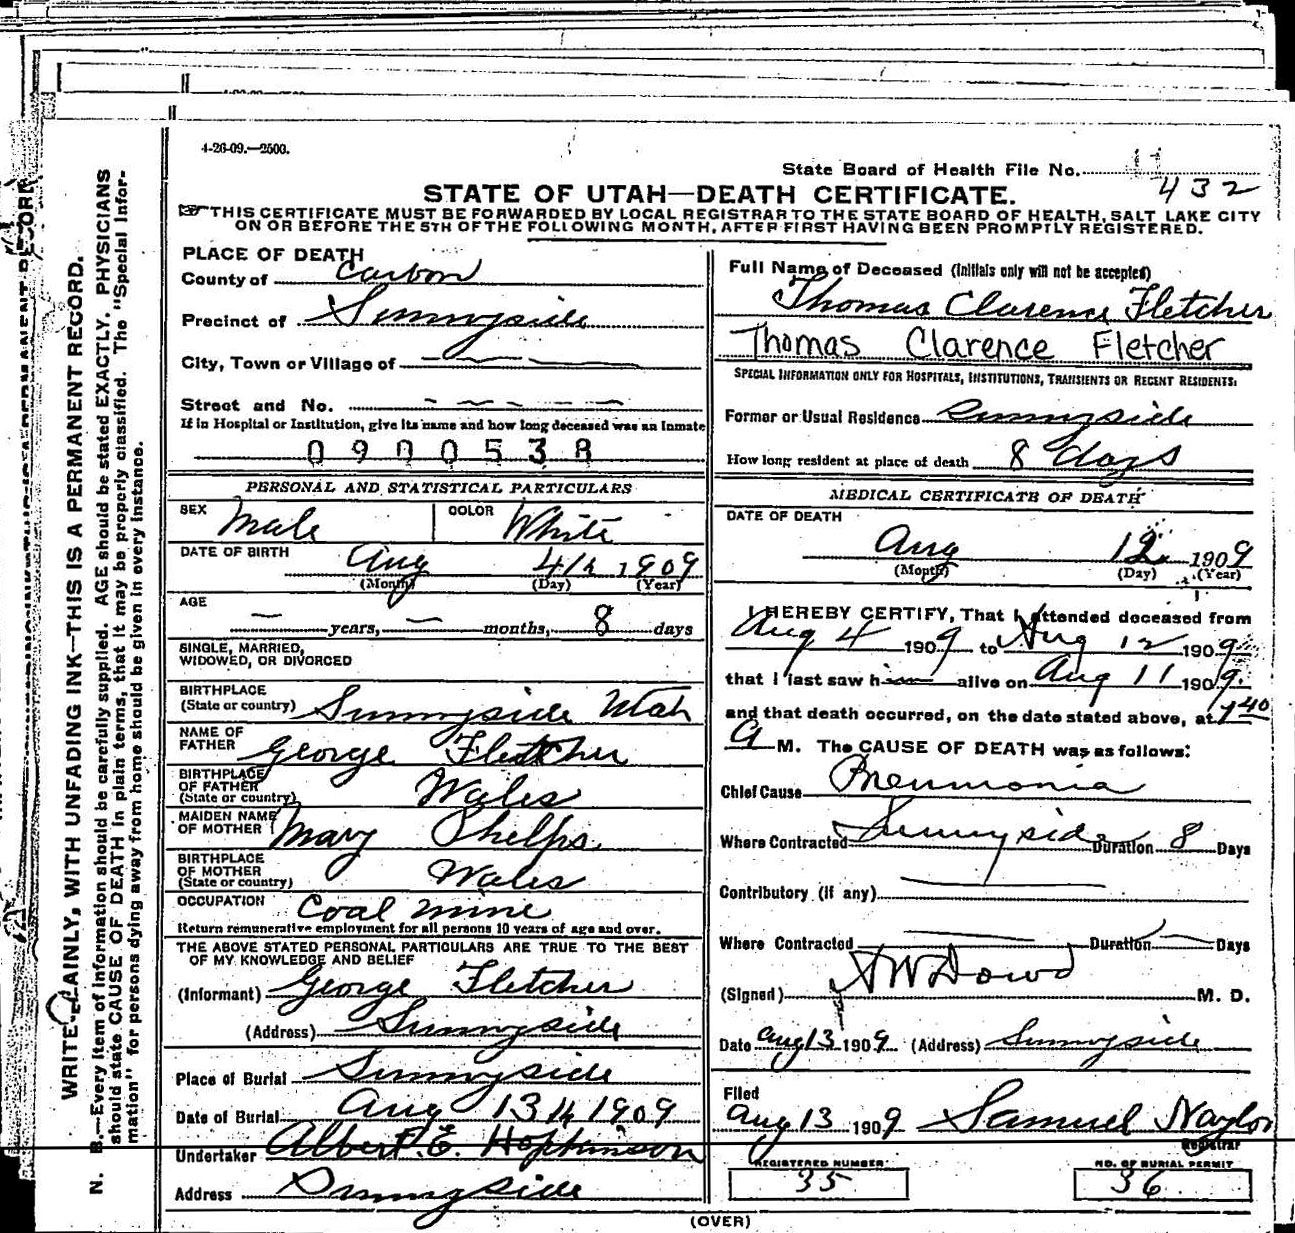 4-26-09.—2500.
State Board of Health File No. 432
STATE OF UTAH—DEATH CERTIFICATE.
☞THIS CERTIFICATE MUST BE FORWARDED BY LOCAL REGISTRAR TO THE STATE BOARD OF HEALTH, SALT LAKE CITY
ON OR BEFORE THE 5TH OF THE FOLLOWING MONTH, AFTER FIRST HAVING BEEN PROMPTLY REGISTERED.
PLACE OF DEATH
County of Carbon
Precinct of Sunnyside
City, Town or Village of — —
Street and No. — — — — —
If in Hospital or Institution, give its name and how long deceased was an Inmate
PERSONAL AND STATISTICAL PARTICULARS
SEX Male COLOR White
DATE OF BIRTH Aug 4th 1909
(Month) (Day) (Year)
AGE
— years, — months, 8 days
SINGLE, MARRIED,
WIDOWED, OR DIVORCED
BIRTHPLACE
(State or country) Sunnyside Utah
NAME OF
FATHER George Fletcher
BIRTHPLACE
OF FATHER
(State or country) Wales
MAIDEN NAME
OF MOTHER Mary Phelps
BIRTHPLACE
OF MOTHER
(State or country) Wales
OCCUPATION Coal mine
Return remunerative employment for all persons 10 years of age and over.
THE ABOVE STATED PERSONAL PARTICULARS ARE TRUE TO THE BEST
OF MY KNOWLEDGE AND BELIEF
(Informant) George Fletcher
(Address) Sunnyside
Place of Burial Sunnyside
Date of Burial Aug 13th 1909
Undertaker Albert E. Hopkinson
Address Sunnyside
Full Name of Deceased (Initials only will not be accepted)
Thomas Clarence Fletcher
Thomas Clarence Fletcher
SPECIAL INFORMATION ONLY FOR HOSPITALS, INSTITUTIONS, TRANSIENTS OR RECENT RESIDENTS:
Former or Usual Residence Sunnyside
How long resident at place of death 8 days
MEDICAL CERTIFICATE OF DEATH
DATE OF DEATH
Aug 12 1909
(Month) (Day) (Year)
I HEREBY CERTIFY, That I attended deceased from
Aug 4 1909 to Aug 12 1909
that I last saw him alive on Aug 11 1909.
and that death occurred, on the date stated above, at 740
A M. The CAUSE OF DEATH was as follows:
Chief Cause Pneumonia
Where Contracted Sunnyside Duration 8 Days
Contributory (if any) —
Where Contracted — Duration — Days
(Signed) M. D.
Date Aug 13 1909 (Address) Sunnyside
Filed
Aug 13 1909 Samuel Naylor
Registrar
REGISTERED NUMBER
35
NO. OF BURIAL PERMIT
36
(OVER)
WRITE PLAINLY, WITH UNFADING INK—THIS IS A PERMANENT RECORD.
N. B.—Every item of information should be carefully supplied. AGE should be stated EXACTLY. PHYSICIANS
should state CAUSE OF DEATH in plain terms, that it may be properly classified. The "Special Infor-
mation" for persons dying away from home should be given in every instance.